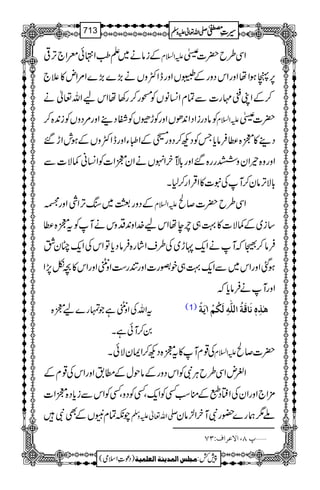 سیرتِ مصطفیٰ صلی اللہ تعالیٰ علیہ وسلم 713
اسی طرح حضرت عیسیٰ علیہ السلام کے زمانے میں علم طب انتہائی معراج ترقی
پر پہنچا ہوا تھا اور اس دور کے طبیبوں اور ڈاکٹروں نے بڑے بڑے امراض کا علاج
کر کے اپنی فنی مہارت سے تمام انسانوں کو مسحور کر رکھا تھا اس لیے اللہ تعالیٰ نے
حضرت عیسیٰ علیہ السلام کو مادر زاد اندھوں اور کوڑھیوں کو شفا دینے اور مردوں کو زندہ کر
دینے کا معجزہ عطا فرمایا جس کو دیکھ کر دور مسیحی کے اطباء اور ڈاکٹروں کے ہوش اڑ گئے
اور وہ حیران و ششدر رہ گئے اور بالآخر انہوں نے ان معجزات کو انسانی کمالات سے
بالاتر مان کر آپ کی نبوت کا اقرار کر لیا۔
اسی طرح حضرت صالح علیہ السلام کے دور بعثت میں سنگ تراشی اور مجسمہ
سازی کے کمالات کا بہت ہی چرچا تھا اس لیے خداوند قدوس نے آپ کو یہ معجزہ عطا
فرما کر بھیجا کہ آپ نے ایک پہاڑی کی طرف اشارہ فرما دیا تو اس کی ایک چٹان شق
ہو گئی اور اس میں سے ایک بہت ہی خوبصورت اور تندرست اونٹنی اور اس کا بچہ نکل پڑا
اور آپ نے فرمایا کہ
هٰذِهٖ نَاقَةُ اللّٰهِ لَكُمْ اٰيَةً (1) یہ اللہ کی اونٹنی ہے جو تمہارے لیے معجزہ
بن کر آئی ہے۔
حضرت صالح علیہ السلام کی قوم آپ کا یہ معجزہ دیکھ کر ایمان لائی۔
الغرض اسی طرح ہر نبی کو اس دور کے ماحول کے مطابق اور اس کی قوم کے
مزاج اور ان کی افتاد طبع کے مناسب کسی کو ایک، کسی کو دو، کسی کو اس سے زیادہ معجزات
ملے مگر ہمارے حضور نبی آخر الزمان صلی اللہ تعالیٰ علیہ وسلم چونکہ تمام نبیوں کے بھی نبی ہیں
1……پ ۸، الاعراف: ۷۳
پیش کش: مجلس المدینۃ العلمیۃ (دعوتِ اسلامی)